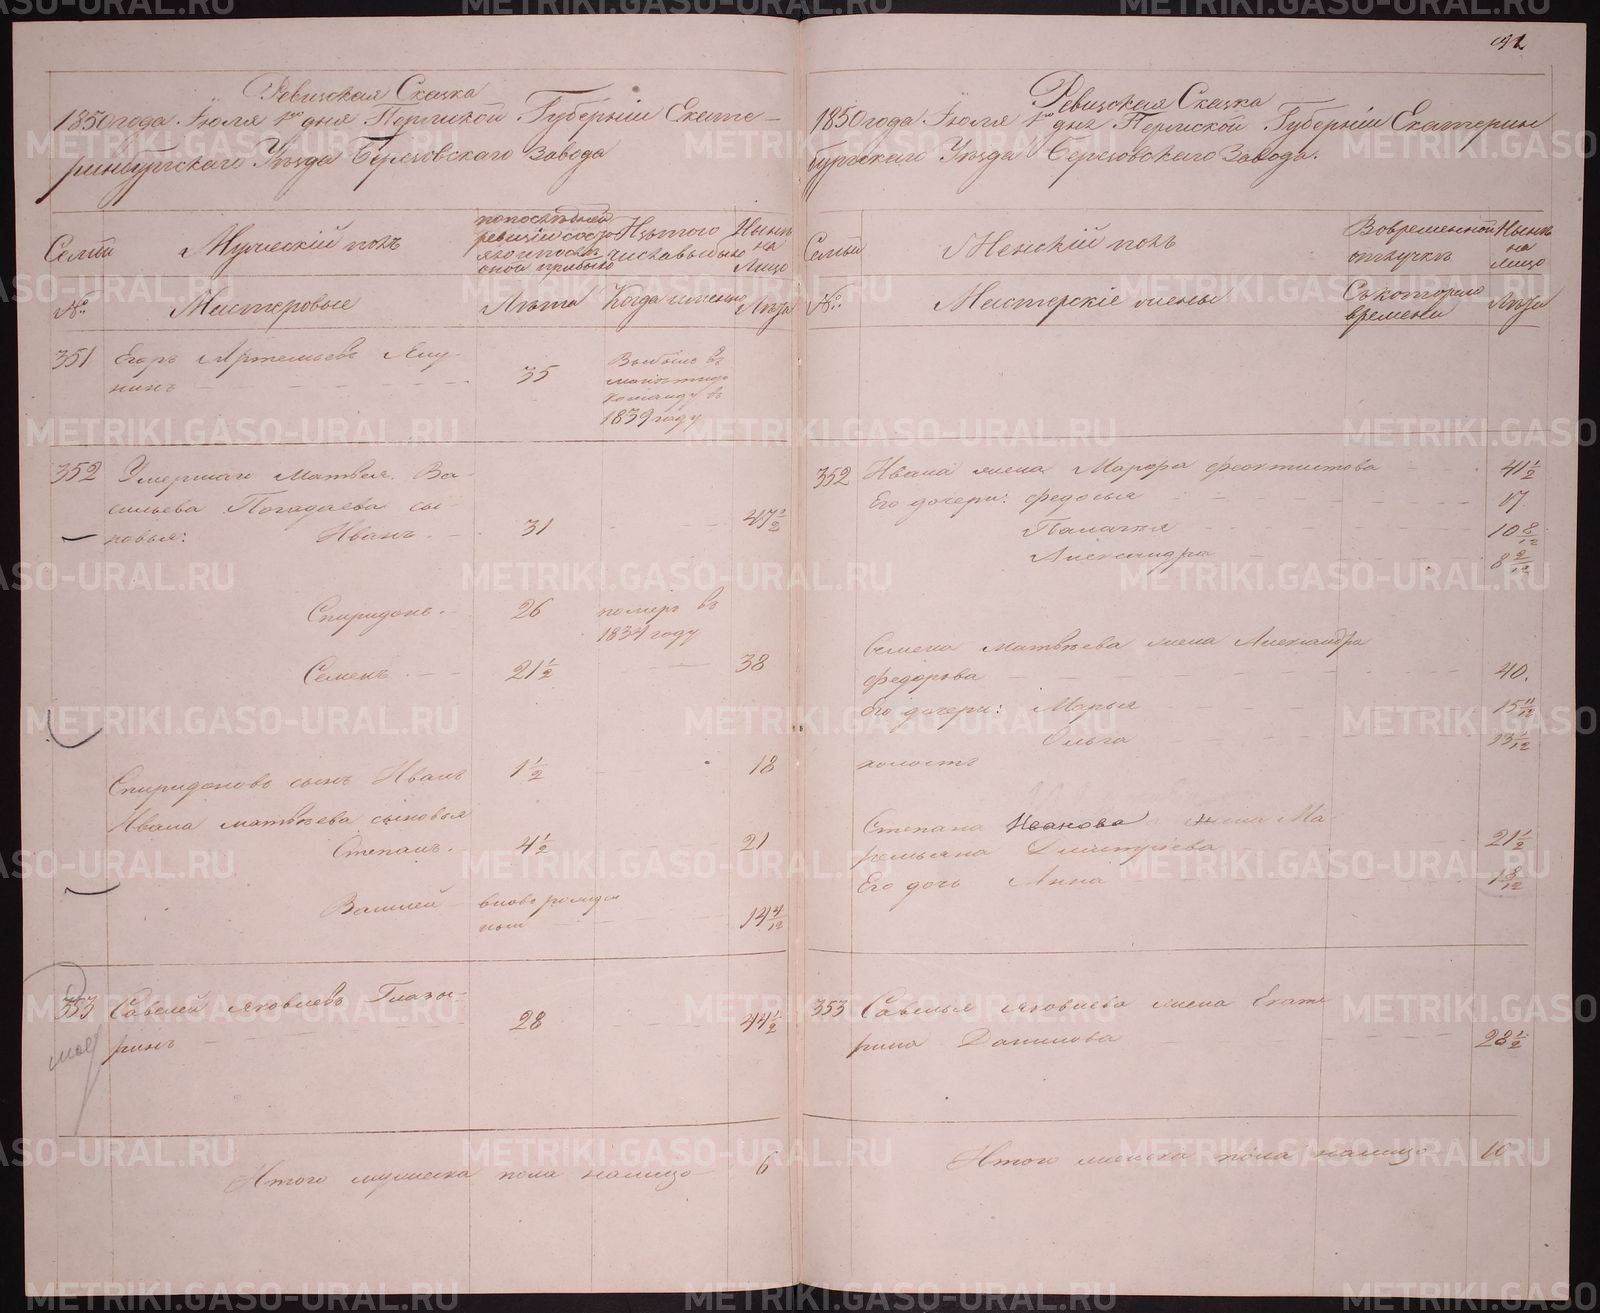 92
Ревизская Сказка
1850 года Июля 1го дня Пермской Губернiи Екате-
ринбургскаго Уѣзда Березовскаго Завода
Семьи
Мужескiй полъ
по последней
ревизiи состо
яло и послѣ
оной прибыло
Изъ того
числа выбыло
Нынѣ
на
Лицо
№:
Мастеровые
Лѣта
Когда именно
Лѣта
351 Егоръ Артемьевъ Яку-
нинъ
35
Выбылъ въ
команду въ
1839 году
352 Умершаго Матвея Ва-
сильева Погадаева сы-
новья: Иванъ
31
47 1/2
Спиридонъ
26
померъ въ
1834 году
Семенъ
21 1/2
38
Спиридоновъ сынъ Иванъ
1 1/2
18
Ивана Матвѣева сыновья
Степанъ
4 1/2
21
Василей
вновь рожден
ный
14 4/12
353 Савелей Яковлевъ Глазы-
ринъ
28
44 1/2
Итого мужеска пола налицо
6
Ревизская Сказка
1850 года Июля 1го дня Пермской Губернiи Екатерин
бургскаго Уѣзда Березовскаго Завода.
Семьи
Женскiй полъ
Во временной
отлучкѣ
Нынѣ
на
лицо
№:
Мастерскiе жены
Съ котораго
времени
Лѣта
352 Ивана жена Марфа Феоктистова
41 1/2
Его дочери: Федосья
17
Палагея
10 8/12
Александра
8 2/12
Семена Матвѣева жена Александра
Федорова
40.
Его дочери: Марья
15 11/12
Ольга
13 1/12
холостъ
Степана Иванова жена Ма-
ремьяна Дмитрiева
21 1/2
Его дочь Анна
1 8/12
353 Савелья Яковлева жена Екате
рина Данилова
28 1/2
Итого женска пола налицо
10